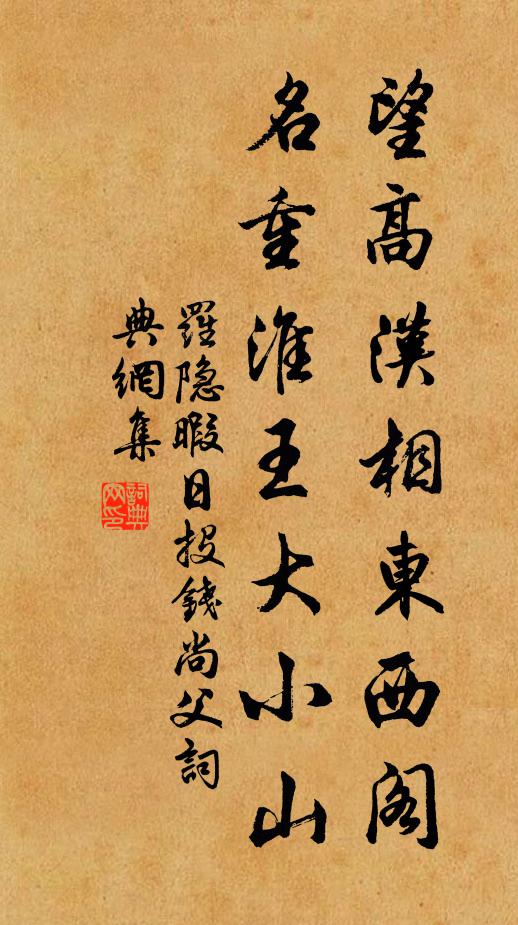 望高漢相東西阁
名重淮王大小山
羅隐暇日投錢尚父詞
典網集
詞典
网印